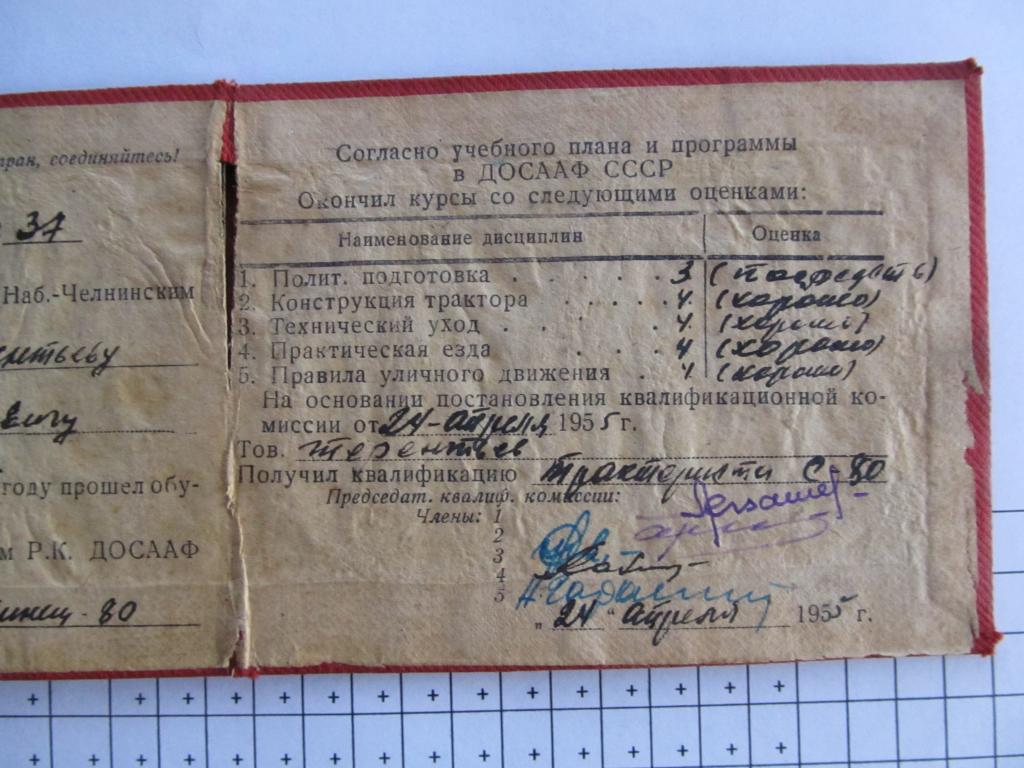 соединяйтесь!
37
Наб.-Челнинским
году прошел обу-
м Р.К. ДОСААФ
80
Согласно учебного плана и программы
в ДОСААФ СССР
Окончил курсы со следующими оценками:
Наименование дисциплин Оценка
1. Полит. подготовка . . . . . 3 (посредств)
2. Конструкция трактора . . . . . 4. (хорошо)
3. Технический уход . . . . 4. (хорошо)
4. Практическая езда . . . 4 (хорошо)
5. Правила уличного движения . 4 (хорошо)
На основании постановления квалификационной ко-
миссии от 24-апреля 1955 г.
Тов. Терентьев
Получил квалификацию тракториста С-80
Председат. квалиф. комиссии:
Члены: 1
2
3
4
5
„24“ апреля 1955 г.